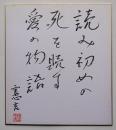 読み初めの
死を賭す
愛の物語